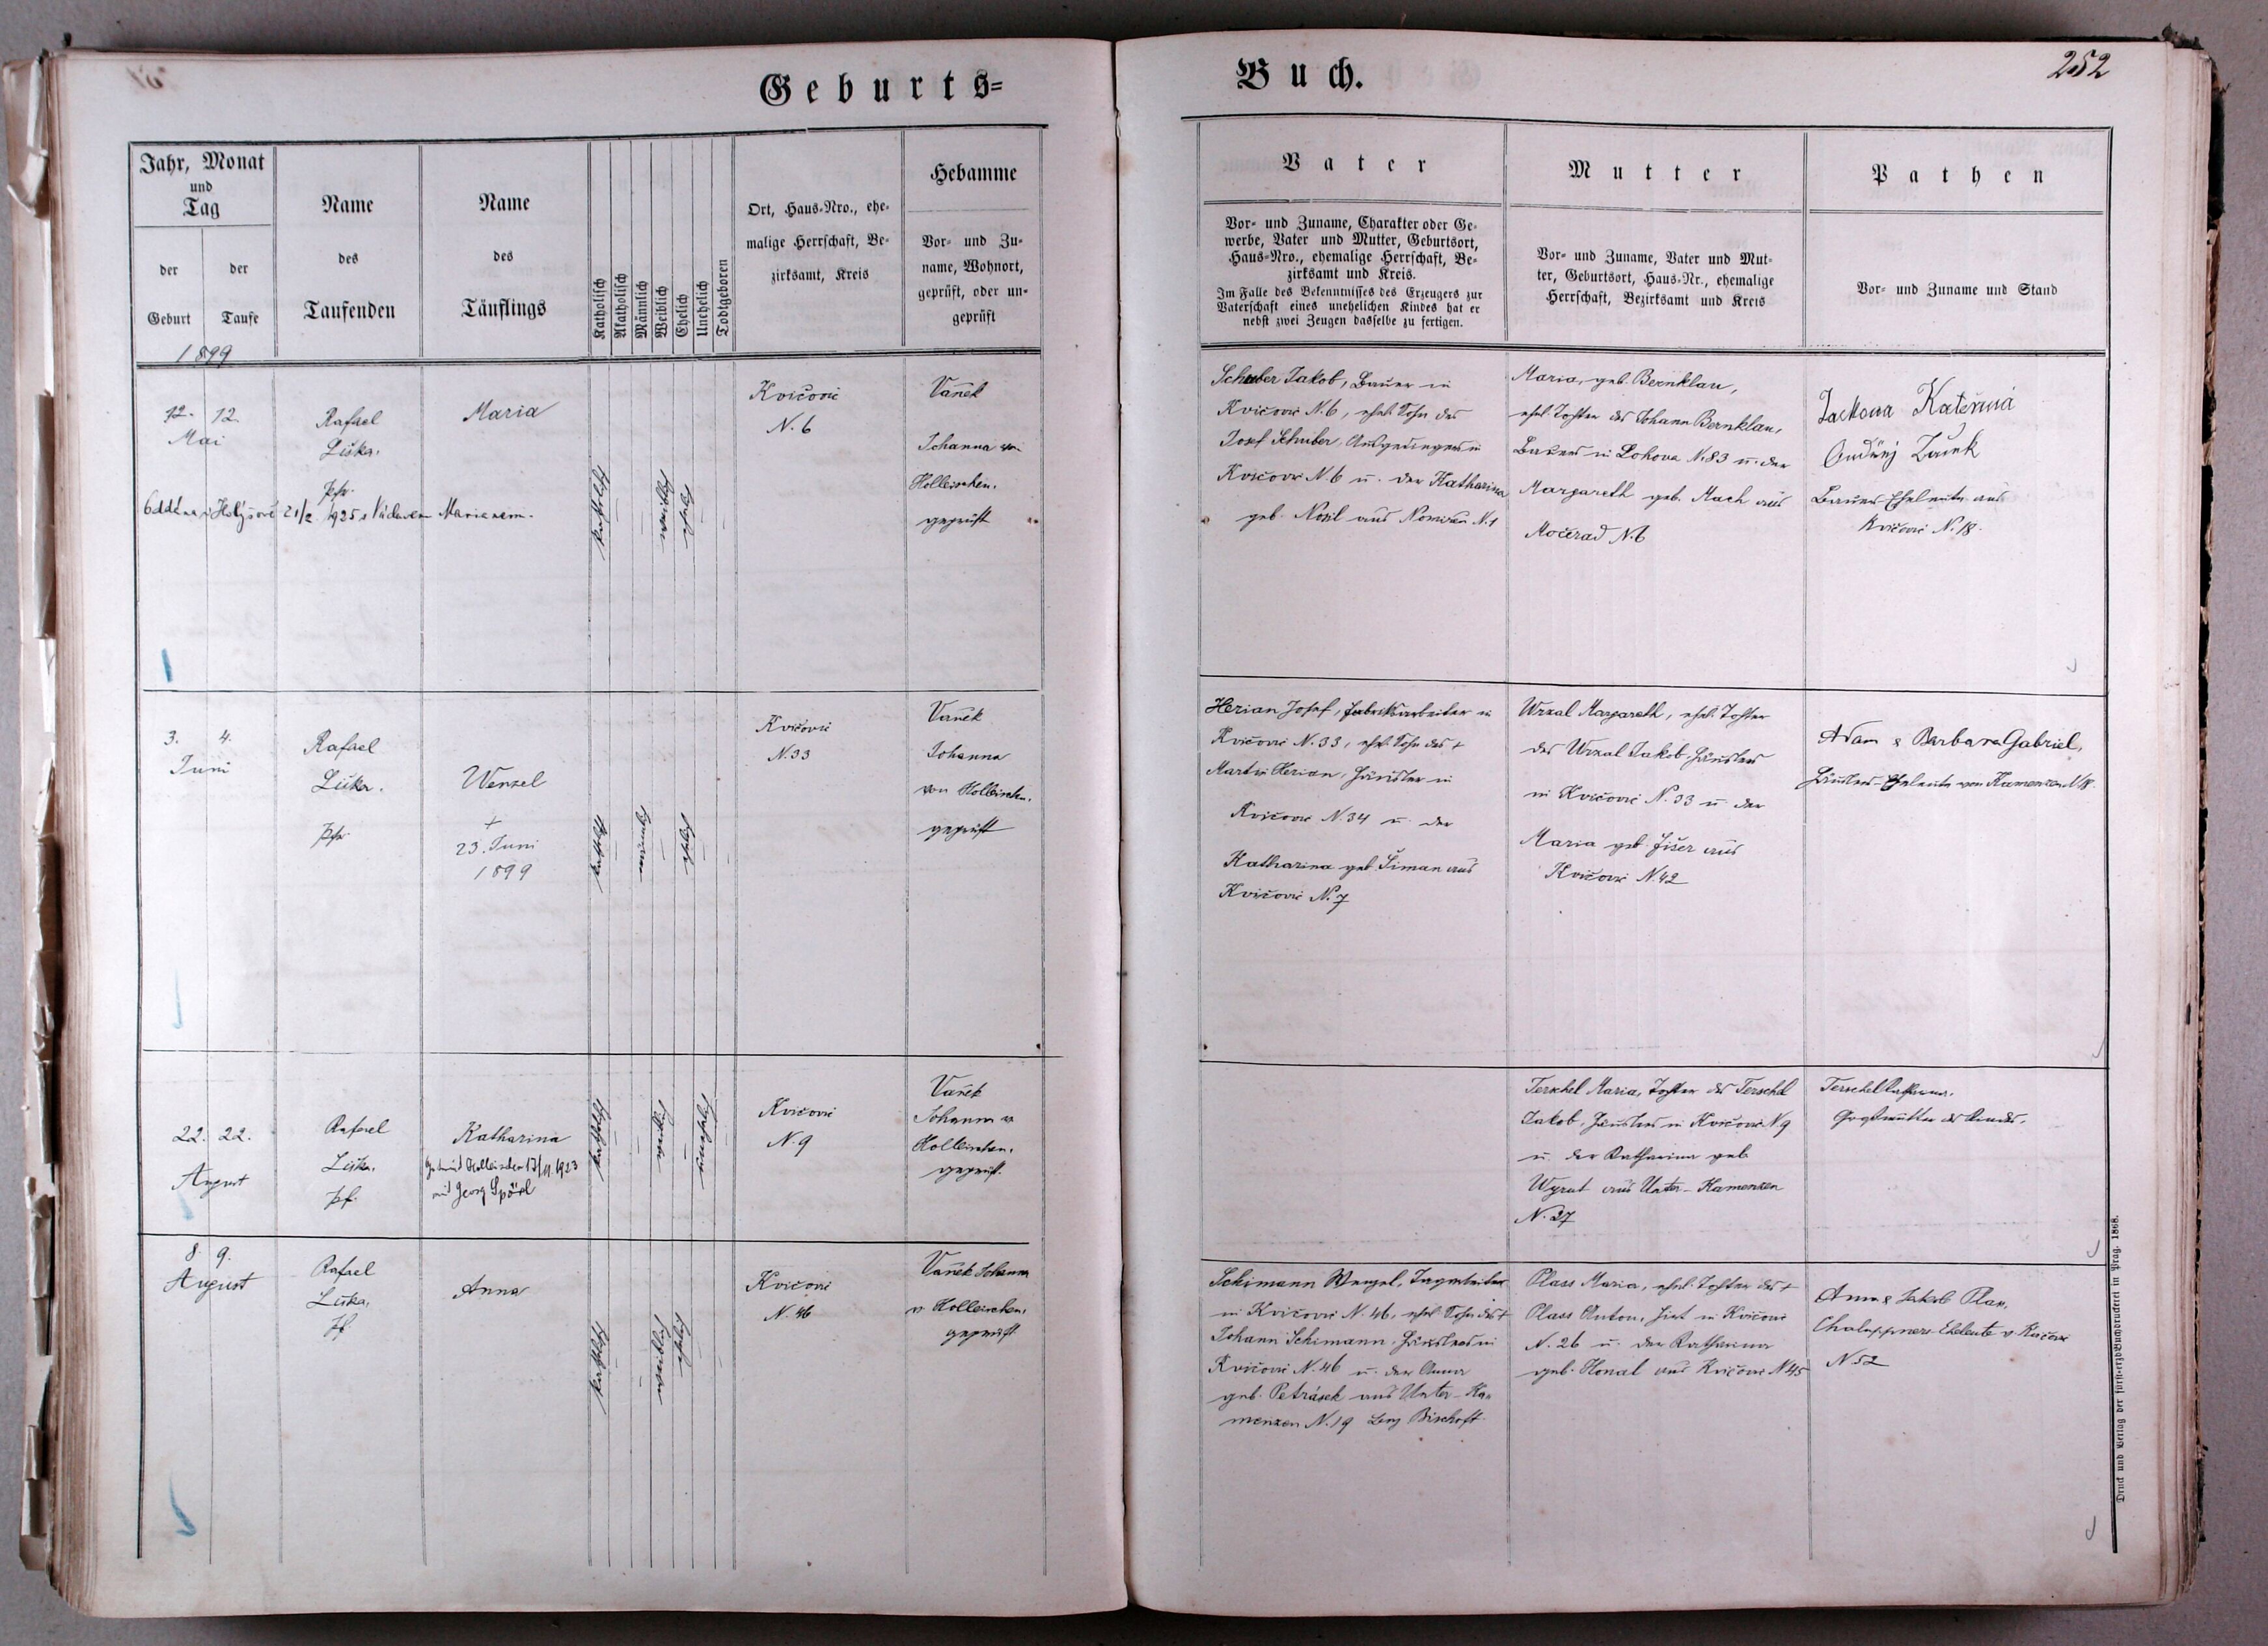 Geburts=
Buch.
252
Jahr, Monat
und
Tag
der
Geburt
der
Taufe
1899
Name
des
Taufenden
Name
des
Täuflings
Katholisch
Akatholisch
Männlich
Weiblich
Ehelich
Unehelich
Todtgeboren
Ort, Haus-Nro., ehe-
malige Herrschaft, Be-
zirksamt, Kreis
Hebamme
Vor- und Zu-
name, Wohnort,
geprüft, oder un-
geprüft
Vater
Vor- und Zuname, Charakter oder Ge-
werbe, Vater und Mutter, Geburtsort,
Haus-Nro., ehemalige Herrschaft, Be-
zirksamt und Kreis.
Im Falle des Bekenntnisses des Erzeugers zur
Vaterschaft eines unehelichen Kindes hat er
nebst zwei Zeugen dasselbe zu fertigen.
Mutter
Vor- und Zuname, Vater und Mut-
ter, Geburtsort, Haus-Nr., ehemalige
Herrschaft, Bezirksamt und Kreis
Pathen
Vor- und Zuname und Stand
12. 12.
Mai
Rafael
Liška.
Pfr.
Maria
katholisch
weiblich
ehelich
Kvičovic
N. 6
Vaněk
Johanna von
Holleischen.
geprüft
Schuber Jakob, Bauer in
Kvičovic N. 6, ehel. Sohn des
Josef Schuber, Ausgedingers in
Kvičovic N. 6 u. der Katharina
geb. aus N. 1
Maria, geb. Bernklau,
ehel. Tochter des Johann Bernklau,
Bauers in Lohova N. 83 u. der
Margareth geb. Mach aus
Močerad N. 6
Kateřina
Ondřej
Bauers-Eheleute aus
Kvičovic N. 18.
Oddána v Holýšově 21/2 1925 s Václavem
3. 4.
Juni
Rafael
Liška.
Pfr.
Wenzel
+
23. Juni
1899
katholisch
männlich
ehelich
Kvičovic
N. 33
Vaněk
Johanna
von Holleischen.
geprüft
Herian Josef, Fabriksarbeiter in
Kvičovic N. 33, ehel. Sohn des +
Martin Herian, Häusler in
Kvičovic N. 34 u. der
Katharina geb. Šiman aus
Kvičovic N. 7
Wrzal Margareth, ehel. Tochter
des Wrzal Jakob, Häuslers
in Kvičovic N. 33 u. der
Maria geb. Fišer aus
Kvičovic N. 42
Adam & Barbara Gabriel,
Häuslers-Eheleute von Kamenzen N. 18.
22. 22.
August
Rafael
Liška.
Pf.
Katharina
Getraut Holleischen 17/11. 1923
mit Georg Spörl
katholisch
weiblich
unehelich
Kvičovic
N. 9
Vaněk
Johanna v.
Holleischen.
geprüft.
Terschel Maria, Tochter des Terschel
Jakob, Häuslers in Kvičovic N. 9
u. der Katharina geb.
Wyrut aus Unter-Kamenzen
N. 27
Terschel Katharina,
Großmutter des Kindes.
8. 9.
August
Rafael
Liška.
Pf.
Anna
katholisch
weiblich
ehelich
Kvičovic
N. 46
Vaněk Johanna
v. Holleischen,
geprüft
Schimann Wenzel, Tagarbeiter
in Kvičovic N. 46, ehel. Sohn des +
Johann Schimann, Häuslers in
Kvičovic N. 46 u. der Anna
geb. Petrášek aus Unter-Ka-
menzen N. 19 Bez. Bischoft.
Plass Maria, ehel. Tochter des +
Plass Anton, Hirt in Kvičovic
N. 26 u. der Katharina
geb. aus Kvičovic N. 45
Anna & Jakob Plass,
Chaluppners-Eheleute v. Kvičovic
N. 52
Druck und Verlag der fürst-erzb. Buchdruckerei in Prag. 1868.